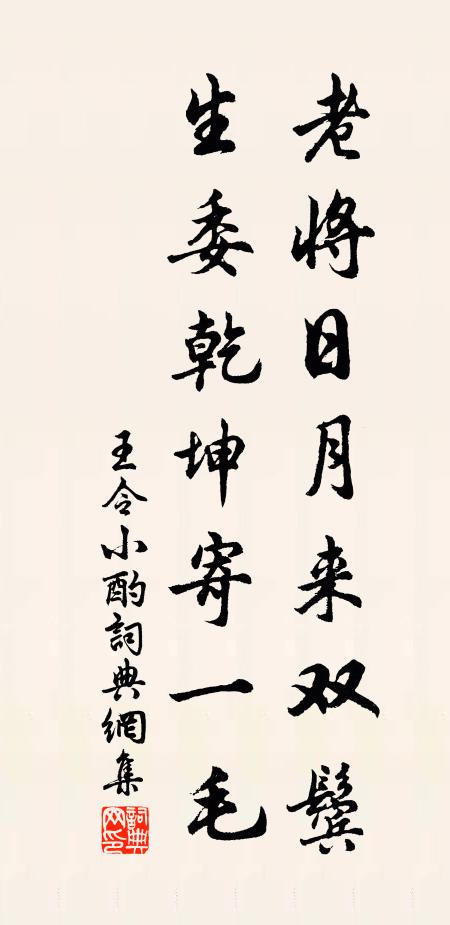 老将日月来双鬓
生委乾坤寄一毛
王令小酌詞典網集
詞典网印